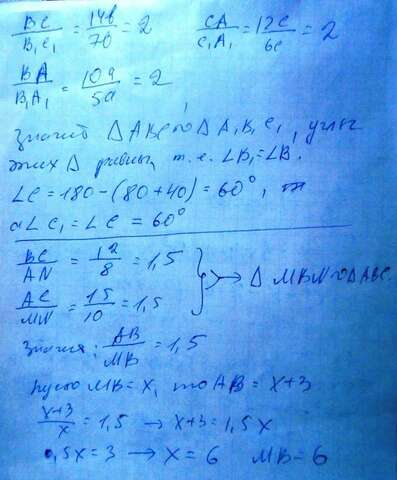 BC/B₁C₁ = 14b/7b = 2 CA/C₁A₁ = 12c/6c = 2
BA/B₁A₁ = 10a/5a = 2
Значит ΔABC ~ ΔA₁B₁C₁, углы
этих Δ равны, т.е. ∠B₁=∠B.
∠C = 180-(80+40) = 60°,
а ∠C₁ = ∠C = 60°
BC/AN = 12/8 = 1,5
AC/MN = 15/10 = 1,5 } → Δ MBN ~ ΔABC.
Значит: AB/MB = 1,5
пусть MB = x, то AB = x+3
x+3/x = 1,5 → x+3 = 1,5x
0,5x = 3 → x = 6 MB = 6